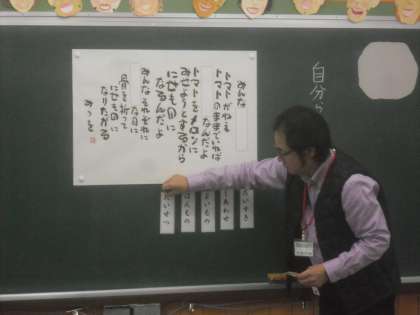 自分ら
みんな
トマトがねえ
トマトのままでいれば
なんだよ
トマトをメロンに
みせようとするから
にせものに
なるんだよ
みんなそれぞれに
なのに
骨を折って
にせものに
なりたがる
みつを
いすき
あわせ
いもの
んもの
いせつ